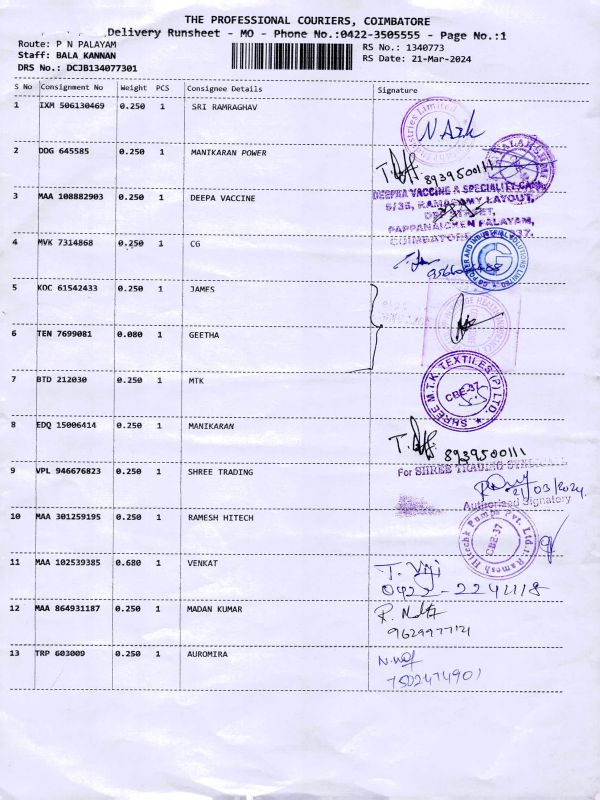 THE PROFESSIONAL COURIERS, COIMBATORE
Delivery Runsheet - MO - Phone No.:0422-3505555 - Page No.:1
Route: P N PALAYAM
RS No.: 1340773
Staff: BALA KANNAN
RS Date: 21-Mar-2024
DRS No.: DCJB134077301
S No Consignment No Weight PCS Consignee Details Signature
1 IXM 506130469 0.250 1 SRI RAMRAGHAV
2 DDG 645585 0.250 1 MANIKARAN POWER
8939500111
3 MAA 108882903 0.250 1 DEEPA VACCINE
DEEPHA VACCINE & SPECIALITY
5/35, RAMASAMY LAYOUT,
PAPPANAICKEN PALAYAM,
4 MVK 7314868 0.250 1 CG
CG POWER AND INDUSTRIAL SOLUTIONS LIMITED
5 KOC 61542433 0.250 1 JAMES
6 TEN 7699081 0.080 1 GEETHA
7 BTD 212030 0.250 1 MTK
SHREE M.T.K. TEXTILES (P) LTD.
CBE-37
8 EDQ 15006414 0.250 1 MANIKARAN
8939500111
9 VPL 946676823 0.250 1 SHREE TRADING
For SHREE TRADING
21/03/2024
Authorised Signatory
10 MAA 301259195 0.250 1 RAMESH HITECH
Ramesh Hitechk Pumps Pvt. Ltd.
CBE-37
11 MAA 102539385 0.680 1 VENKAT
T. Viji
0422-2241118
12 MAA 864931187 0.250 1 MADAN KUMAR
9629977121
13 TRP 603009 0.250 1 AUROMIRA
7502474901